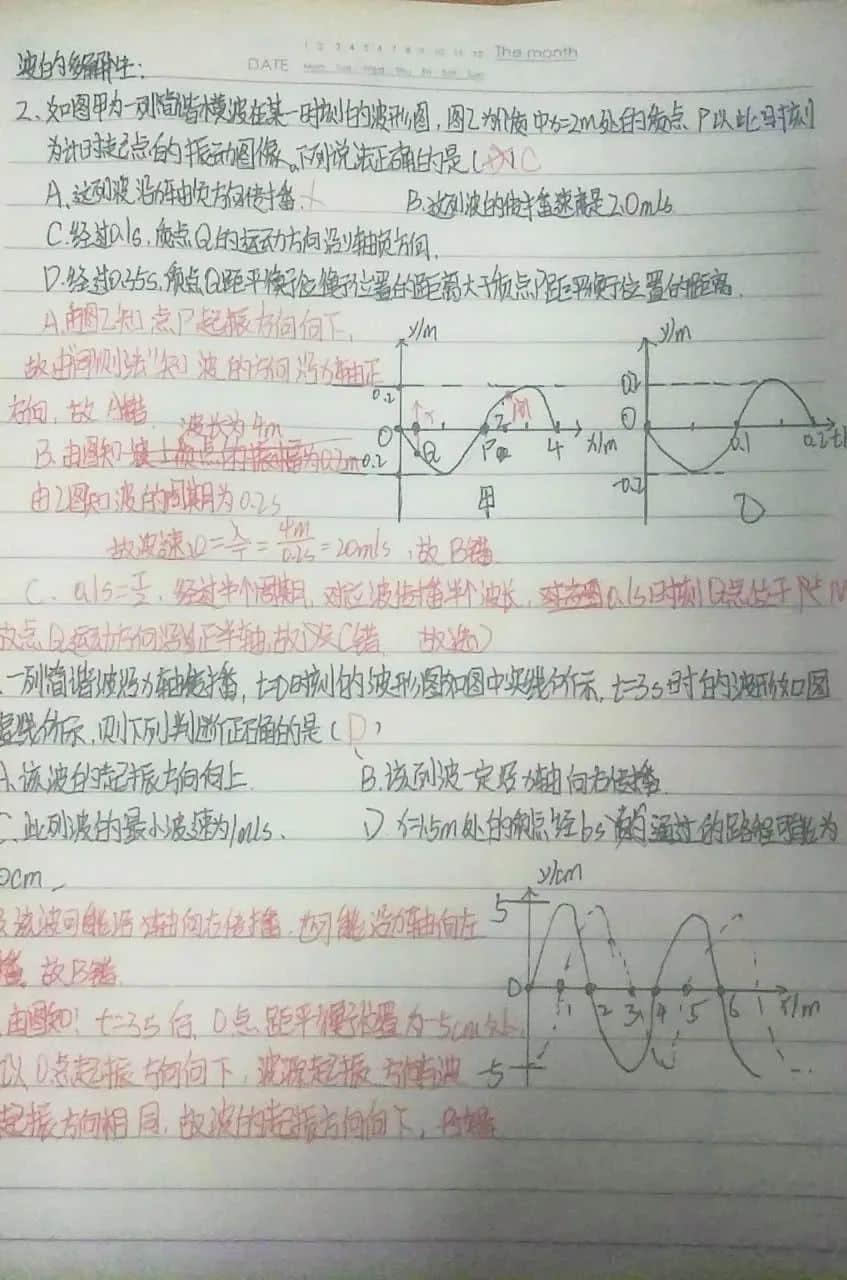 1 2 3 4 5 6 7 8 9 10 11 12 The month
DATE Mon Tue Wed Thu Fri Sat Sun
波的多解性:
2、如图甲为一列简谐横波在某一时刻的波形图,图乙为介质中x=2m处的质点P以此时刻
为计时起点的振动图像。下列说法正确的是( )C
A、这列波沿x轴负方向传播. ×
B.这列波的传播速度是2.0m/s
C.经过0.1s,质点Q的运动方向沿y轴负方向.
D.经过0.35s,质点Q距平衡位置的距离大于质点P距平衡位置的距离.
A.由图乙知点P起振方向向下,
故由"同侧法"知波的方向沿x轴正
方向,故A错. 波长为4m
B.由图知 质点的振幅为0.2m
由乙图知波的周期为0.2s
故波速v=λ/T=4m/0.2s=20m/s,故B错.
C. 0.1s=T/2,经过半个周期,对应波传播半个波长, 0.1s时刻Q点位于
故点Q运动方向沿y正半轴,故C错. 故选D
y/m
0.2
0
0.2
Q
P
2
4
x/m
甲
y/m
0.2
0
-0.2
0.1
0.2 t/
乙
一列简谐波沿x轴传播,t=0时刻的波形图如图中实线所示,t=3s时的波形如图
虚线所示,则下列判断正确的是(D)
A.该波的起振方向向上.
B.该列波一定沿x轴向右传播.
C.此列波的最小波速为1m/s.
D x=1.5m处的质点经6s 通过的路程可能为
0cm.
该波可能沿x轴向右传播,也可能沿x轴向左
播,故B错.
由图知:t=3s后,O点距平衡位置为-5cm处,
以O点起振方向向下,波源起振方向与波
起振方向相同,故波的起振方向向下,A错
y/cm
5
0
-5
1 2 3 4 5 6
x/m